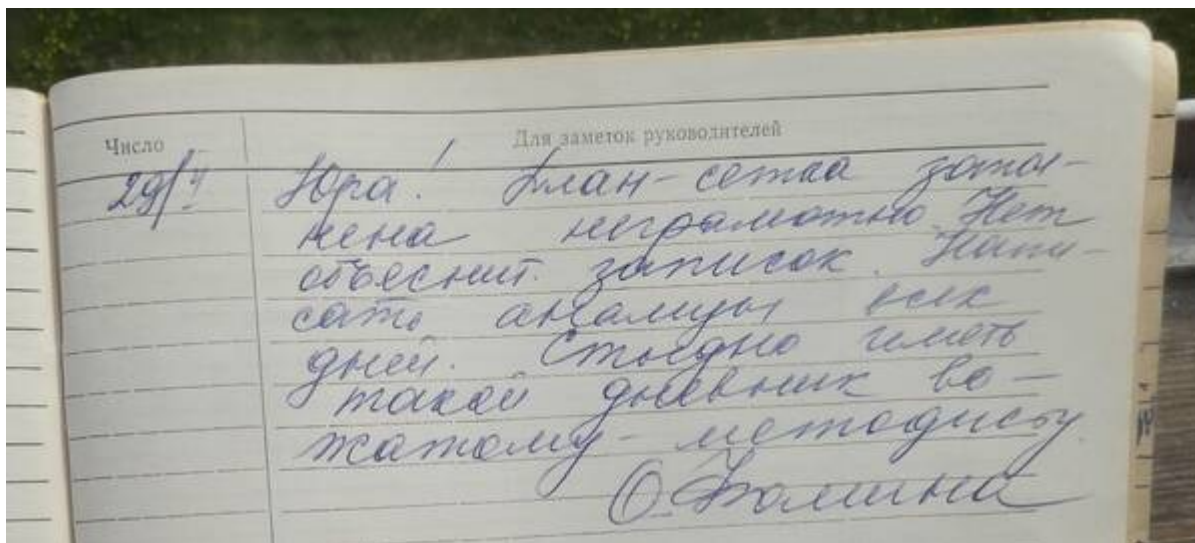 Число Для заметок руководителей
29/V Юра! План-сетка запол-
нена неграмотно. Нет
объяснит. записок. Напи-
сать анализы всех
дней. Стыдно иметь
такой дневник во-
жатому-методисту.